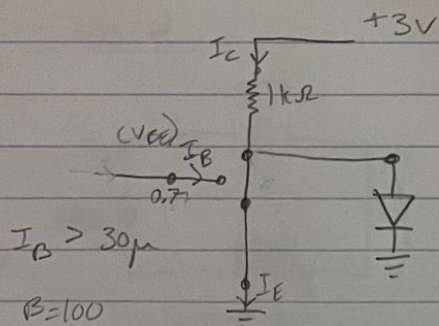 +3V
Ic
1kΩ
IB
0.7
IB > 30μ
IE
β=100